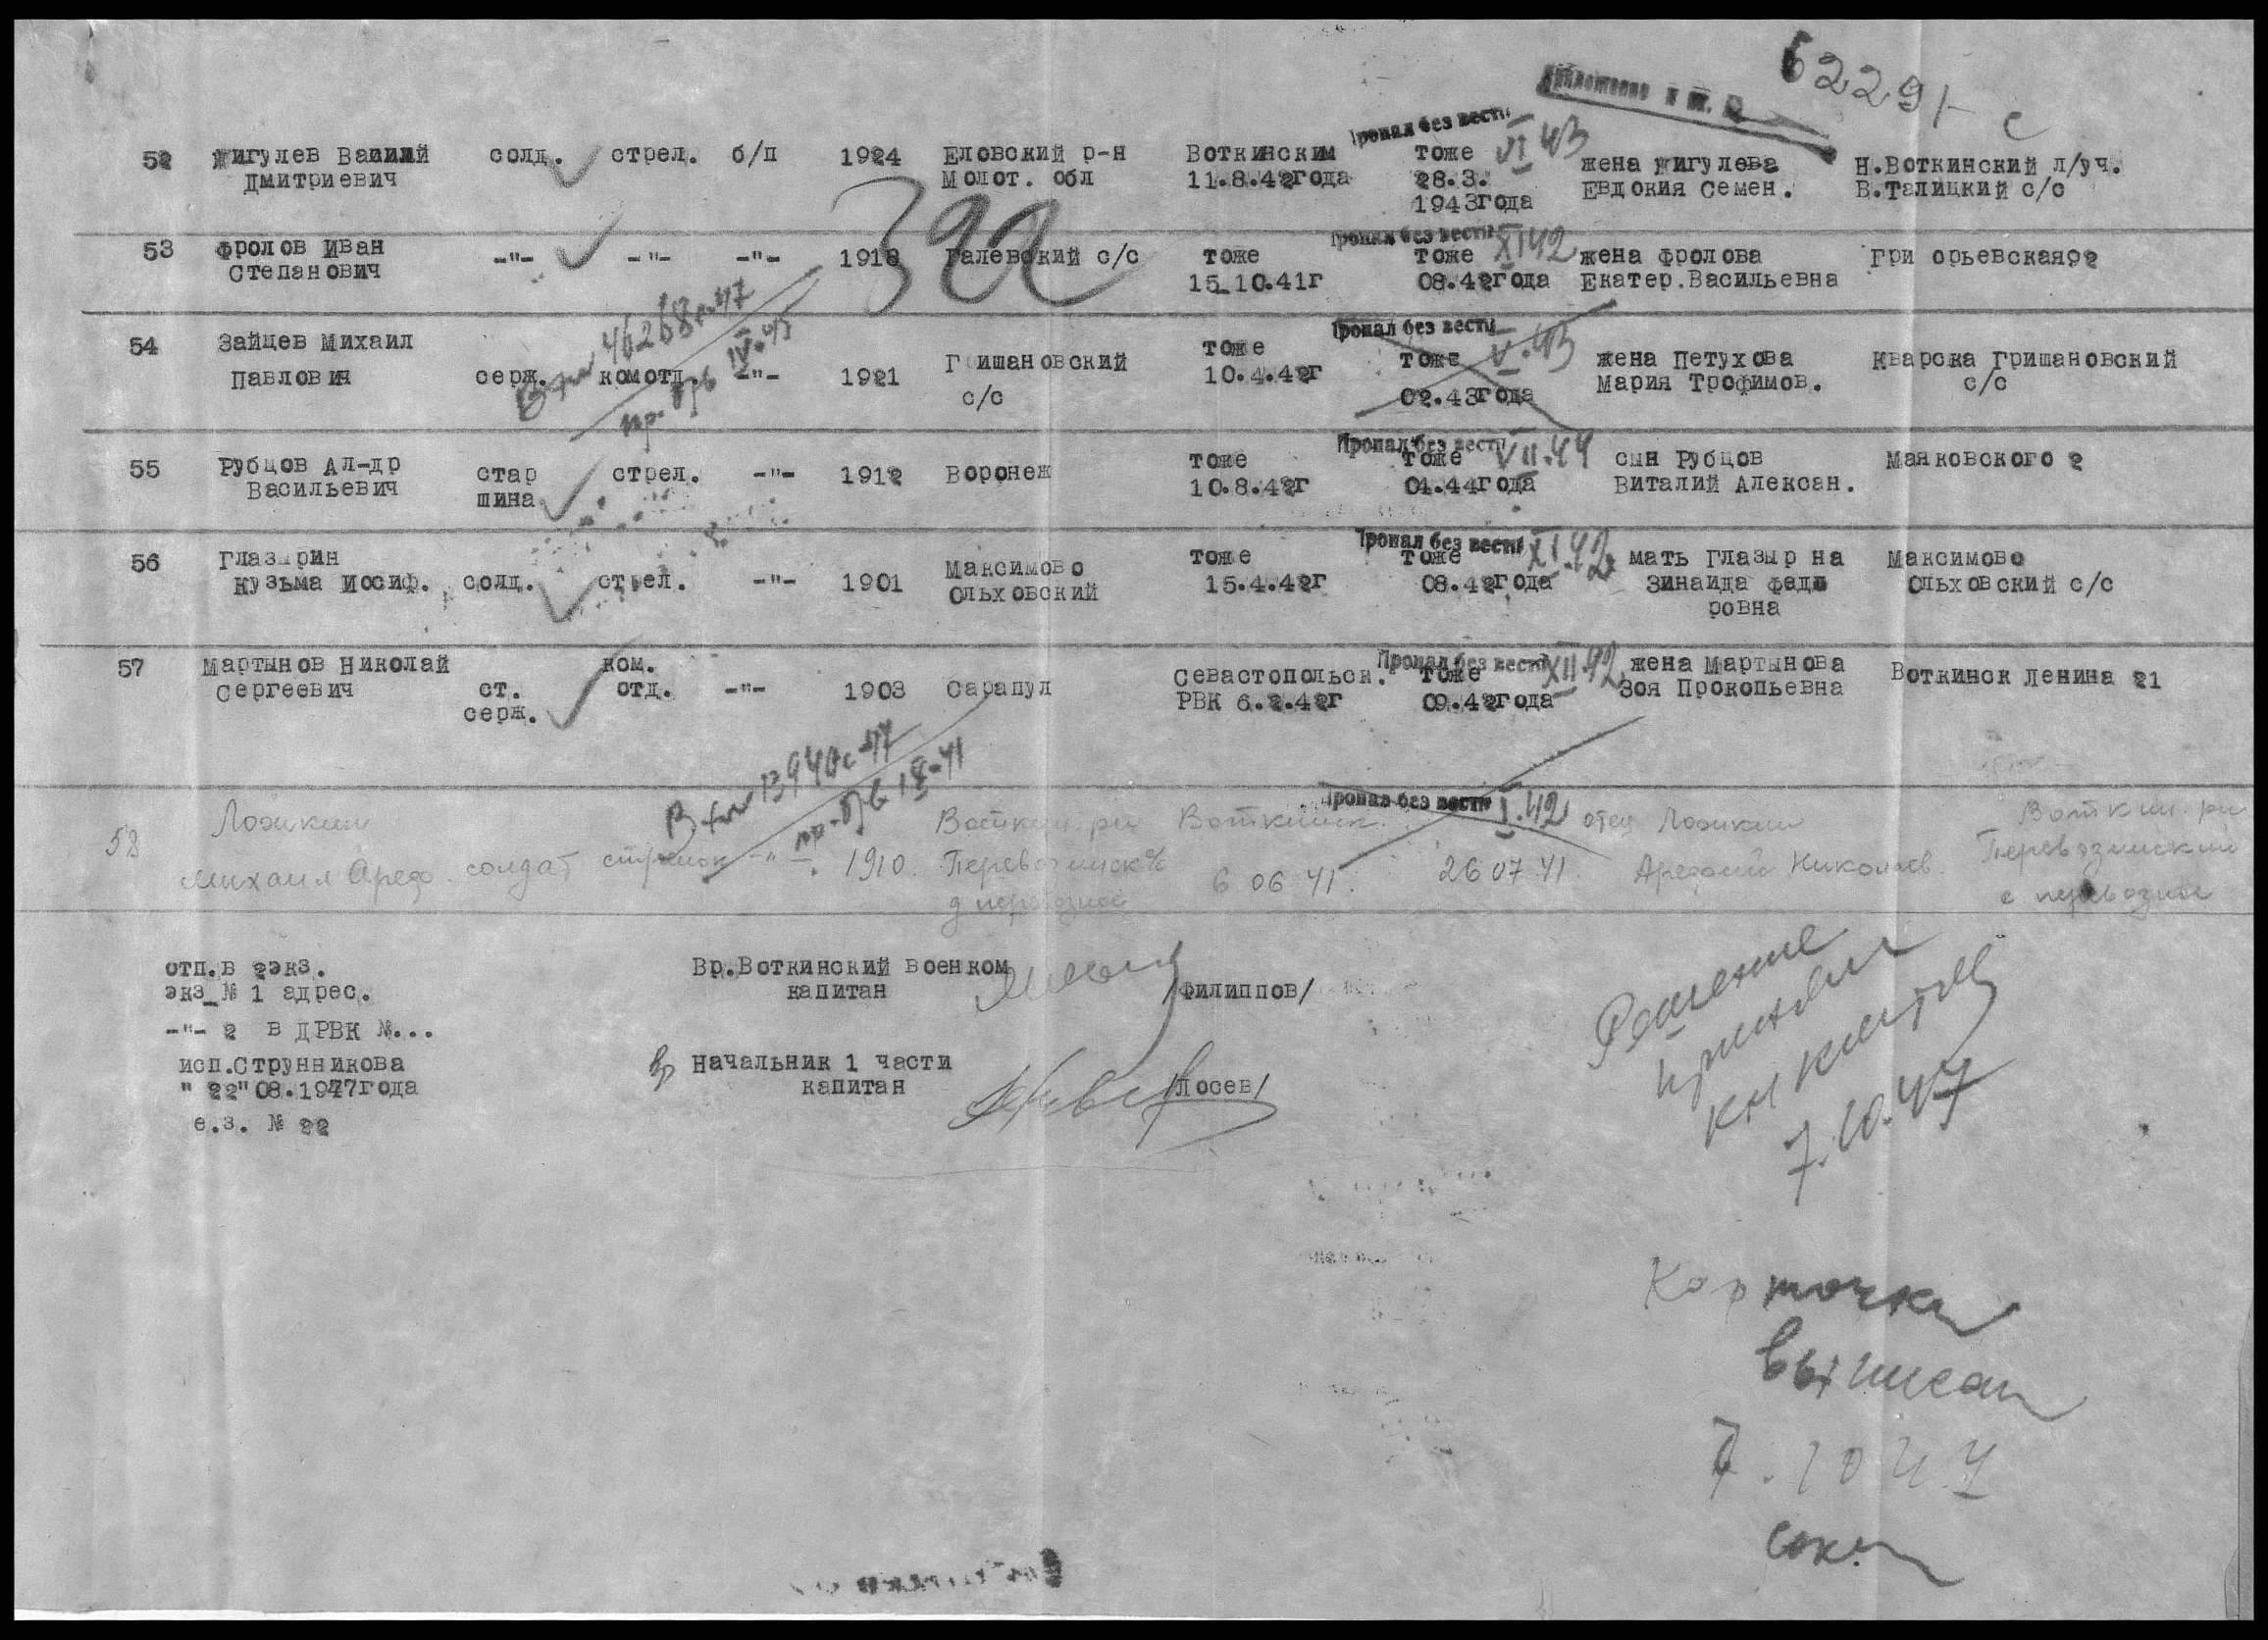 62291 с
Приложение к вх.
Пропал без вести VI 43
52 Жигулев Василий солд. стрел. б/п 1924 Еловский р-н Воткинским тоже жена Жигулева Н.Воткинский л/уч.
Дмитриевич Молот. обл 11.8.42года 28.3. Евдокия Семен. В.Талицкий с/с
1943года
Пропал без вести XI 42
53 Фролов Иван -"- -"- -"- 1918 Галевский с/с тоже тоже жена Фролова Гри орьевская92
Степанович 15_10.41г 08.42года Екатер.Васильевна
Пропал без вести V.43
54 Зайцев Михаил тоже тоже жена Петухова Кварска Гришановский
Павлович серж. комотд. -"- 1921 Г ишановский 10.4.42г Мария Трофимов. с/с
с/с 02.43года
46268с-47
IV.45
Пропал без вести VII.44
55 Рубцов Ал-др стар стрел. -"- 1912 Воронеж тоже тоже сын Рубцов Маяковского 2
Васильевич шина 10.8.42г 04.44года Виталий Алексан.
Пропал без вести XI.42
56 Глазырин тоже тоже мать Глазыр на Максимово
Кузьма Иосиф. солд. стрел. -"- 1901 Максимово 15.4.42г 08.42года Зинаида Федо Ольховский с/с
Ольховский ровна
Пропал без вести XII.42
57 Мартынов Николай ком. Севастопольск. тоже жена Мартынова Воткинск Ленина 21
Сергеевич ст. отд. -"- 1903 Сарапул РВК 6.2.42г 09.42года Зоя Прокопьевна
серж.
13940с-47
Пропал без вести X.42
58 Ложкин Воткин. р-н Воткинск. отец Ложкин Воткин. р-н
Михаил Ареф. солдат стрелок -"- 1910 6 06 41. 26 07 41. Арефий Николаев. Перевозинский
отп.в 2экз. Вр.Воткинский военком
экз_№ 1 адрес. капитан /Филиппов/
-"- 2 в ДРВК №...
исп.Струнникова Вр Начальник 1 части
" 22"08.1947года капитан /Лосев/
е.з. № 22
Решение
принял
7.10.47
Карточки
выписал
7.10 47